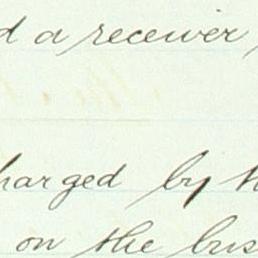 d a receiver
harged by th
on the bus